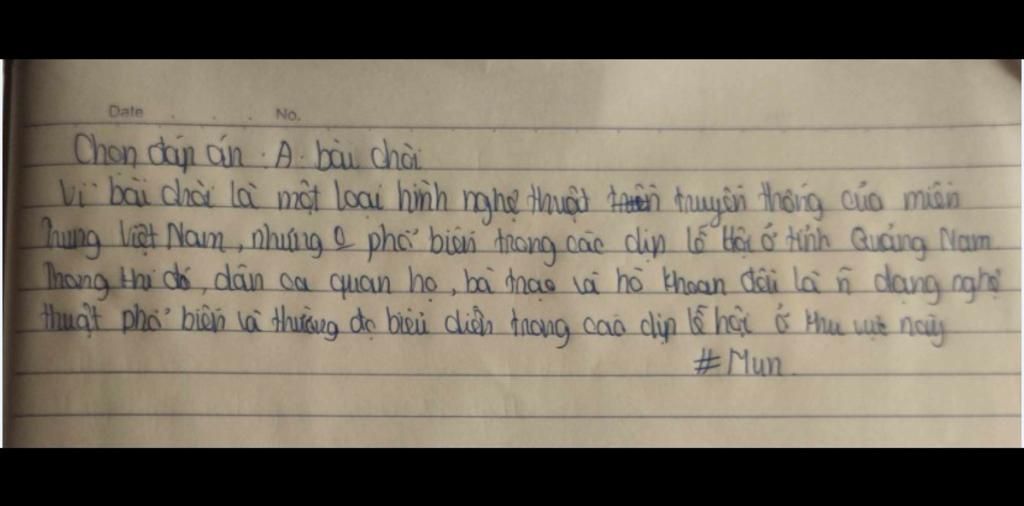 Date No.
Chọn đáp án . A. bài chòi
Vì bài chòi là một loại hình nghệ thuật truyền thống của miền
Trung Việt Nam, nhưng 0 phổ biến trong các dịp lễ hội ở tỉnh Quảng Nam
Trong khi đó, dân ca quan họ, bả trạo và hô khoan đều là ~ dạng nghệ
thuật phổ biến và thường đc biểu diễn trong các dịp lễ hội ở khu vực này
# Mun